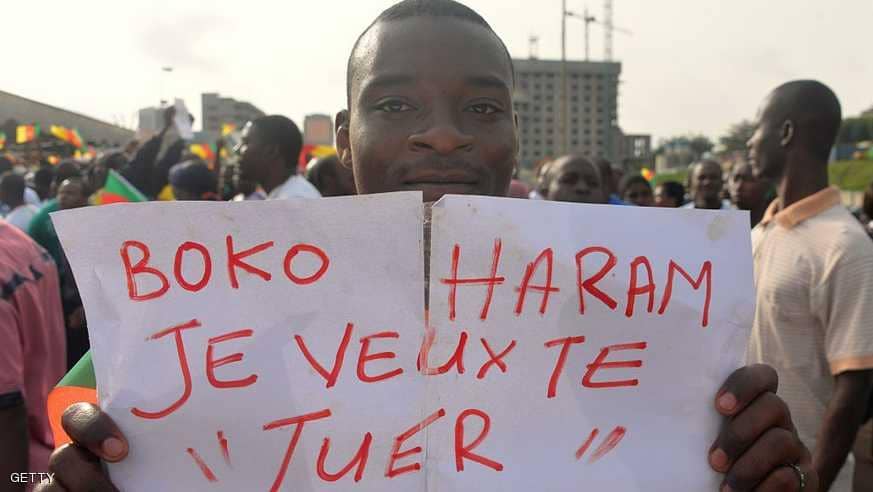 BOKO HARAM
JE VEUX TE
"TUER"
GETTY